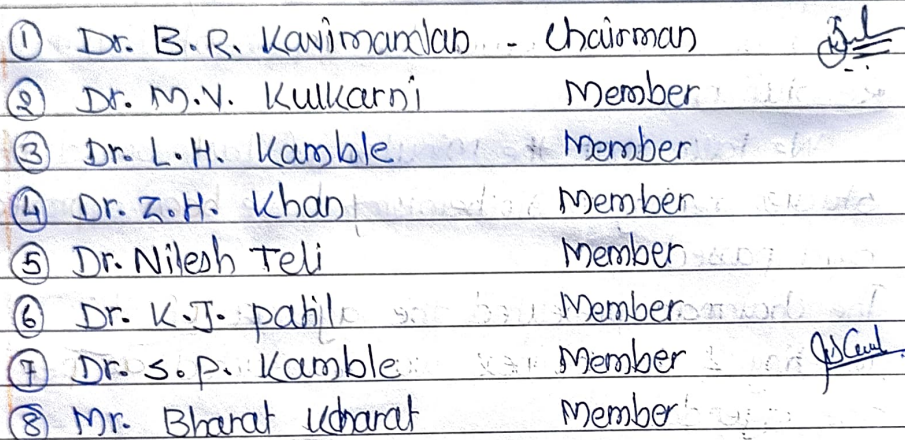 ① Dr. B. R. Kavimandan - Chairman
② Dr. M. V. Kulkarni Member
③ Dr. L. H. Kamble Member
④ Dr. Z. H. Khan Member
⑤ Dr. Nilesh Teli Member
⑥ Dr. K. J. Patil Member
⑦ Dr. S. P. Kamble Member
⑧ Mr. Bharat Kharat Member